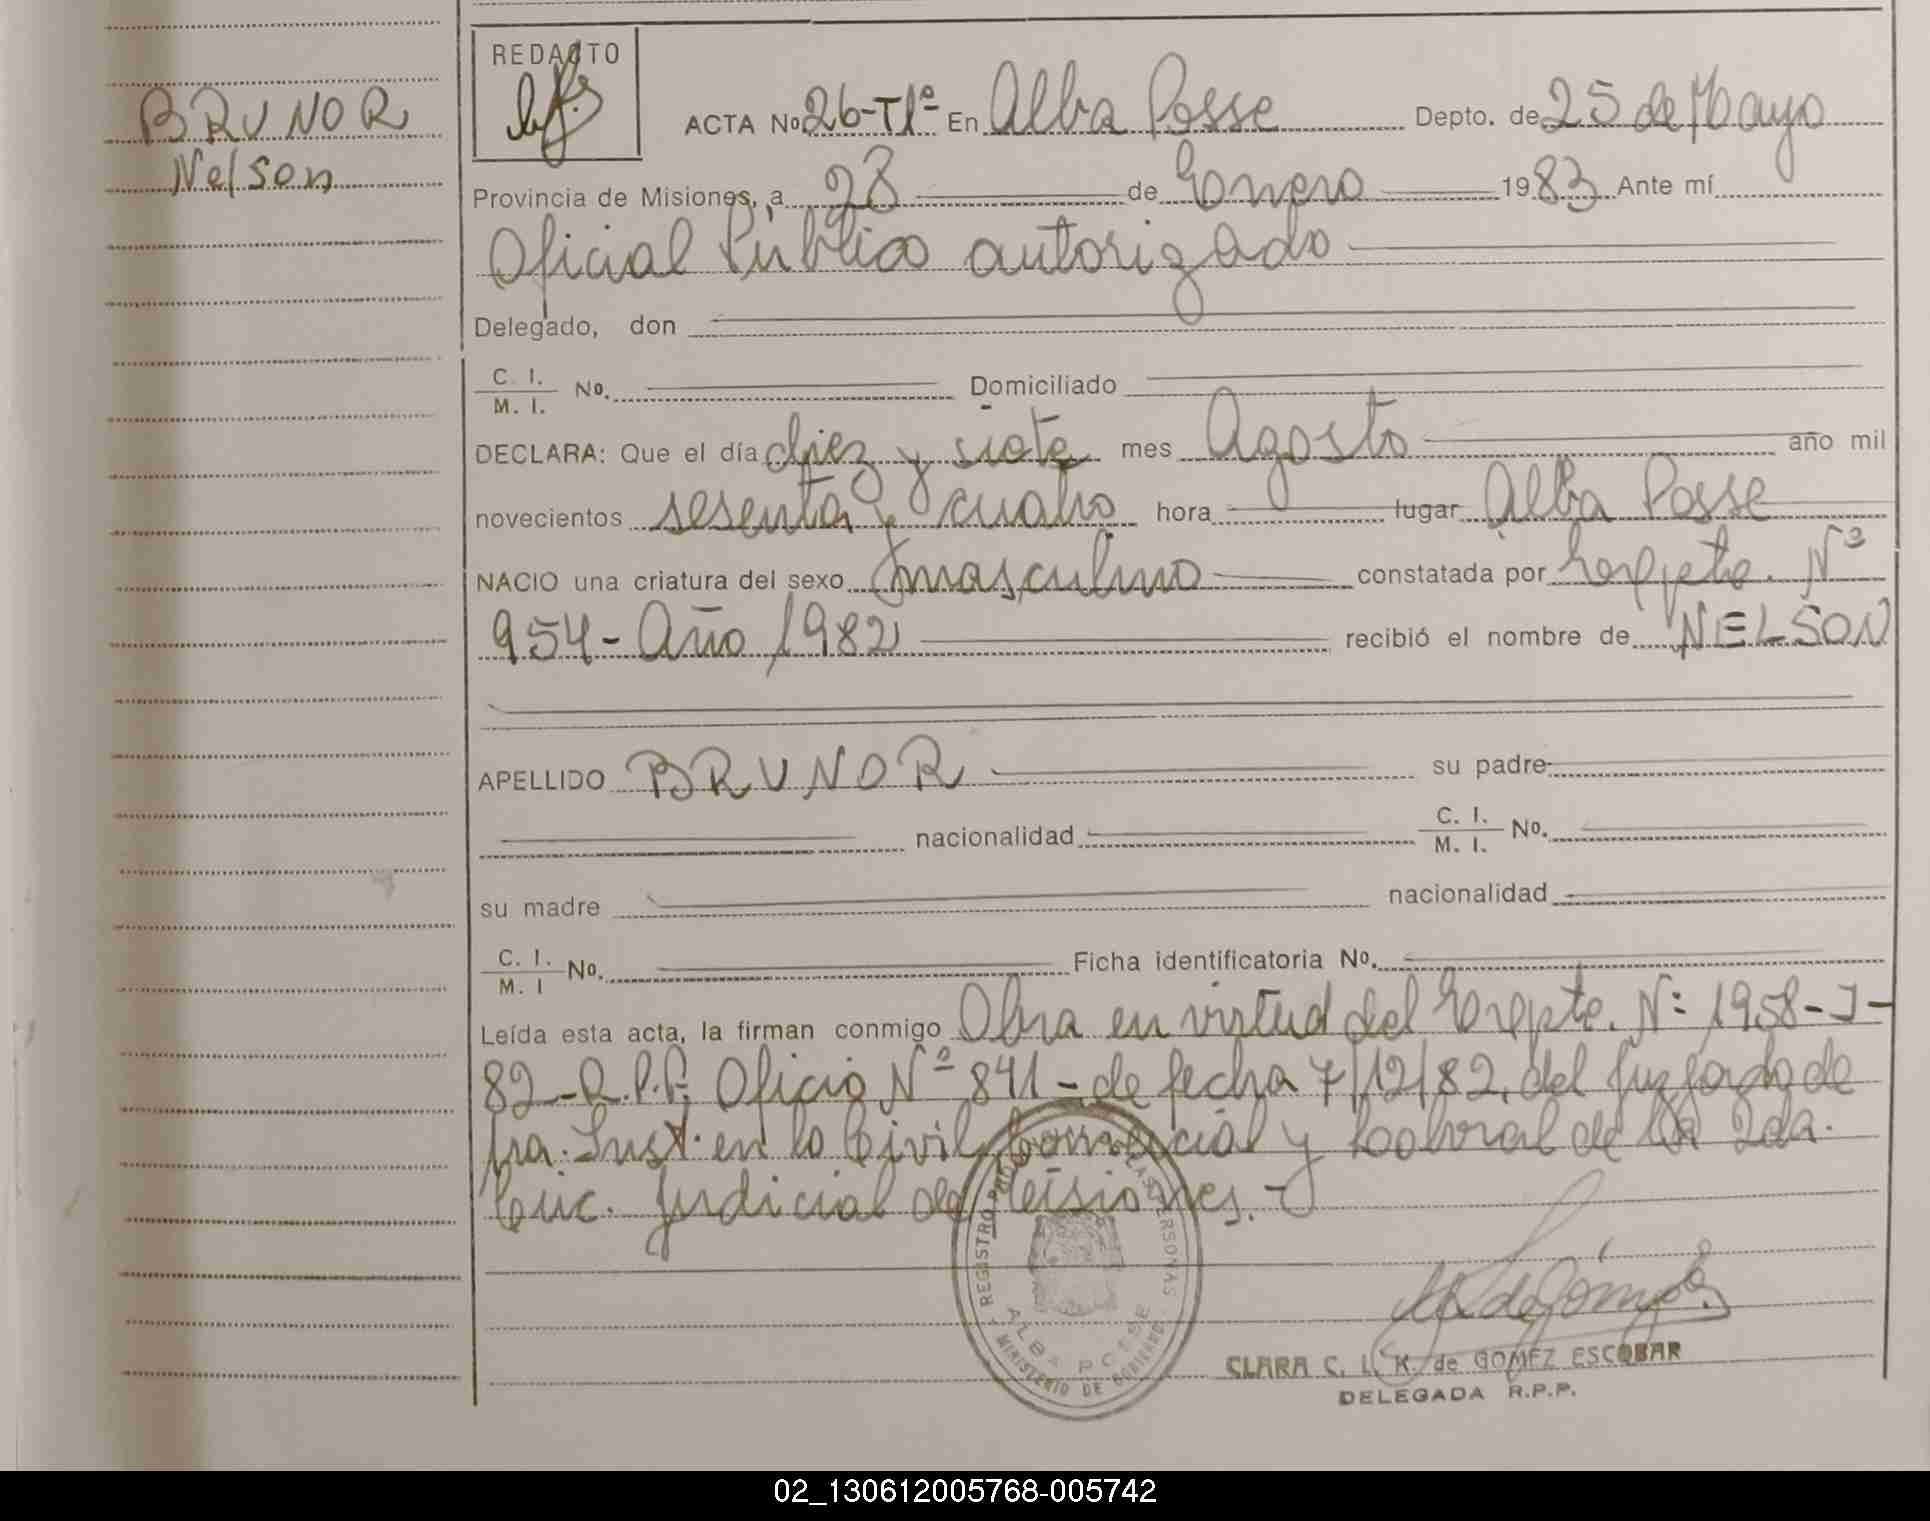 BRUNOR
Nelson
REDACTO
ACTA No. 26-Tlº En Alba Posse Depto. de 25 de Mayo
Provincia de Misiones, a 28 de Enero 1983 Ante mí
Oficial Público autorizado
Delegado, don
C. I.
M. I. No. Domiciliado
DECLARA: Que el día diez y siete mes Agosto año mil
novecientos sesenta y cuatro hora lugar Alba Posse
NACIO una criatura del sexo masculino constatada por Expte. Nº
954 - Año 1982 recibió el nombre de NELSON
APELLIDO BRUNOR su padre
nacionalidad C. I.
M. I. No.
su madre nacionalidad
C. I.
M. I No. Ficha identificatoria No.
Leída esta acta, la firman conmigo Obra en virtud del Expte. Nº 1958-J-
82-R.P.P. Oficio Nº 841- de fecha 7/12/82, del Juzgado de
1ra. Inst. en lo Civil, Comercial y Laboral de la 2da.
Circ. Judicial de Misiones.-
REGISTRO LAS PERSONAS
ALBA POSSE
MINISTERIO DE GOBIERNO
CLARA C. L. K. de GOMEZ ESCOBAR
DELEGADA R.P.P.
02_130612005768-005742